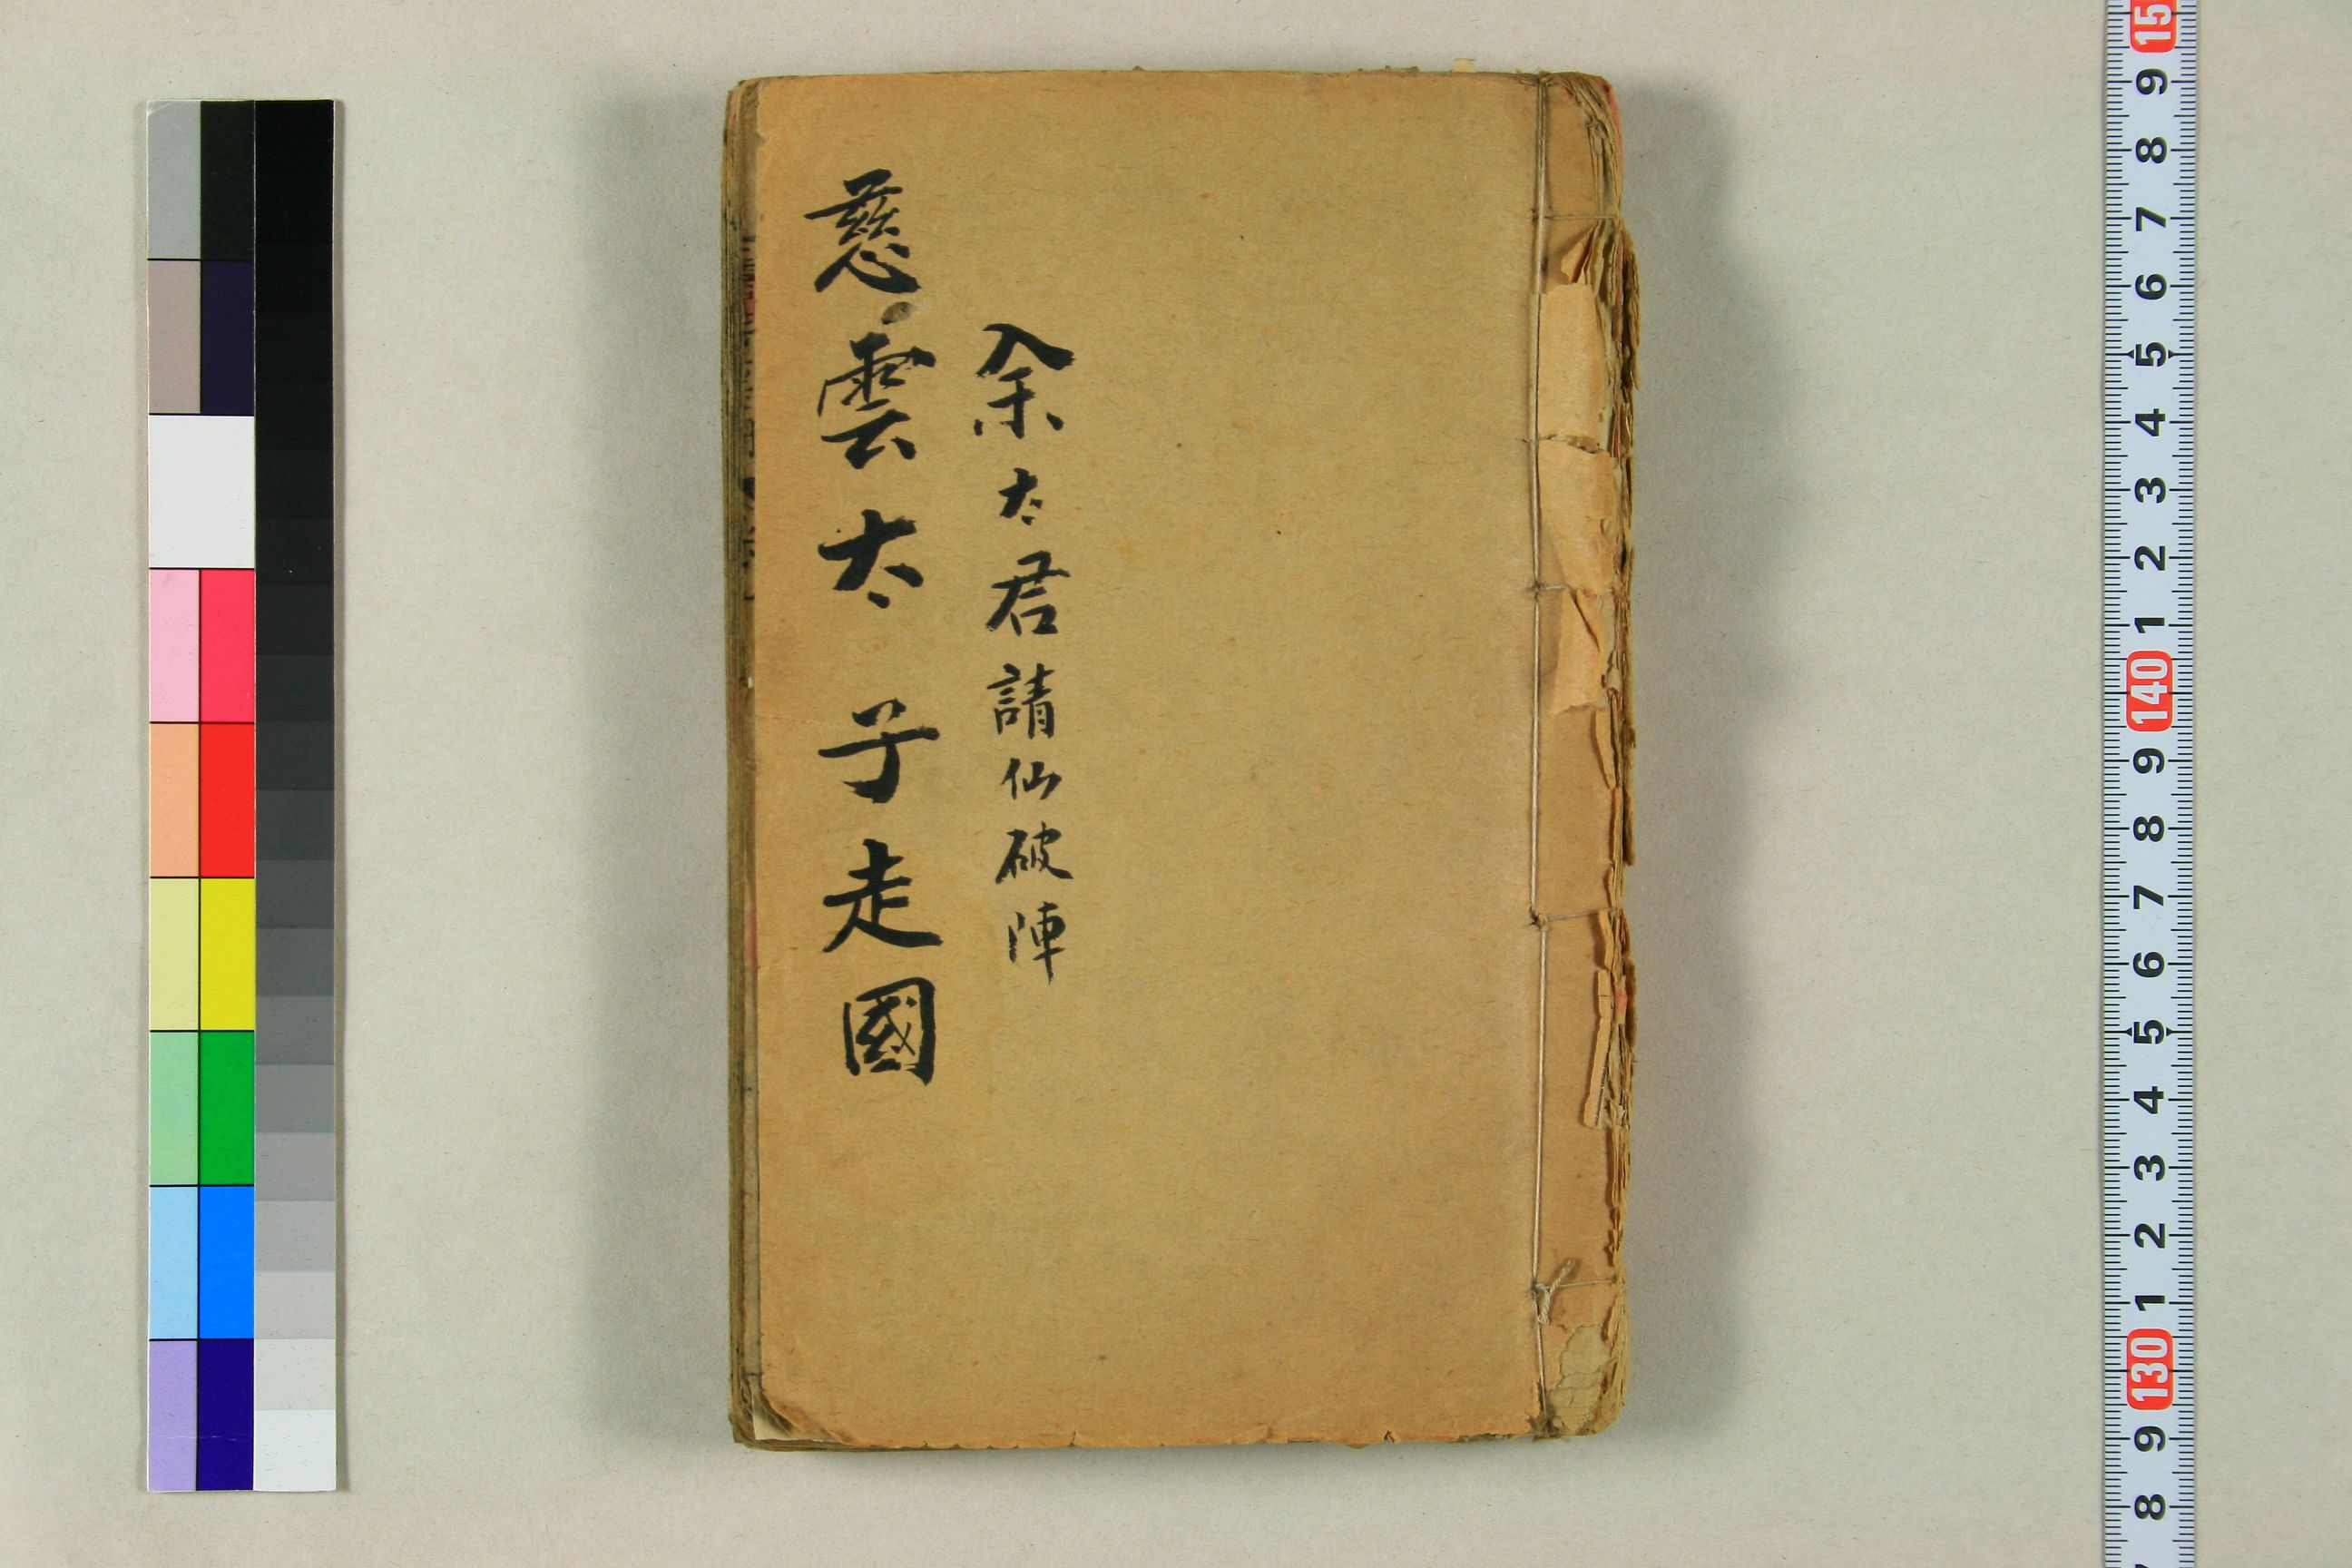 余太君請仙破陣
慈雲太子走國
15
9
8
7
6
5
4
3
2
1
140
9
8
7
6
5
4
3
2
1
130
9
8